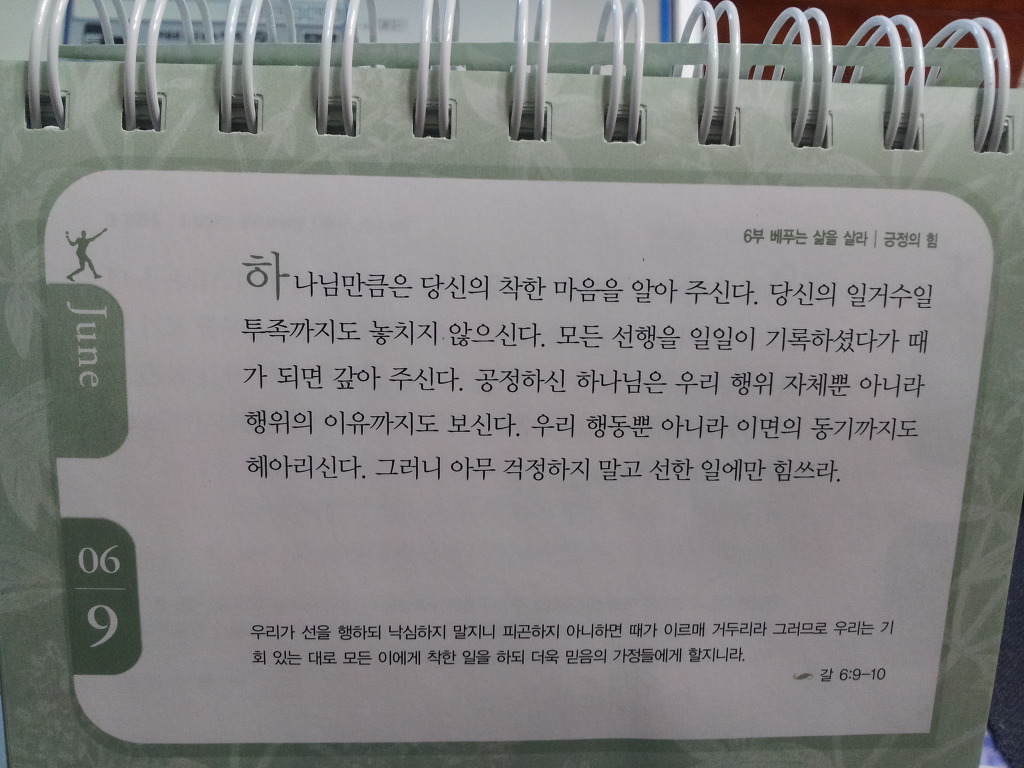 6부 베푸는 삶을 살라 | 긍정의 힘
하나님만큼은 당신의 착한 마음을 알아 주신다. 당신의 일거수일
투족까지도 놓치지 않으신다. 모든 선행을 일일이 기록하셨다가 때
가 되면 갚아 주신다. 공정하신 하나님은 우리 행위 자체뿐 아니라
행위의 이유까지도 보신다. 우리 행동뿐 아니라 이면의 동기까지도
헤아리신다. 그러니 아무 걱정하지 말고 선한 일에만 힘쓰라.
June
06
9
우리가 선을 행하되 낙심하지 말지니 피곤하지 아니하면 때가 이르매 거두리라 그러므로 우리는 기
회 있는 대로 모든 이에게 착한 일을 하되 더욱 믿음의 가정들에게 할지니라.
갈 6:9-10